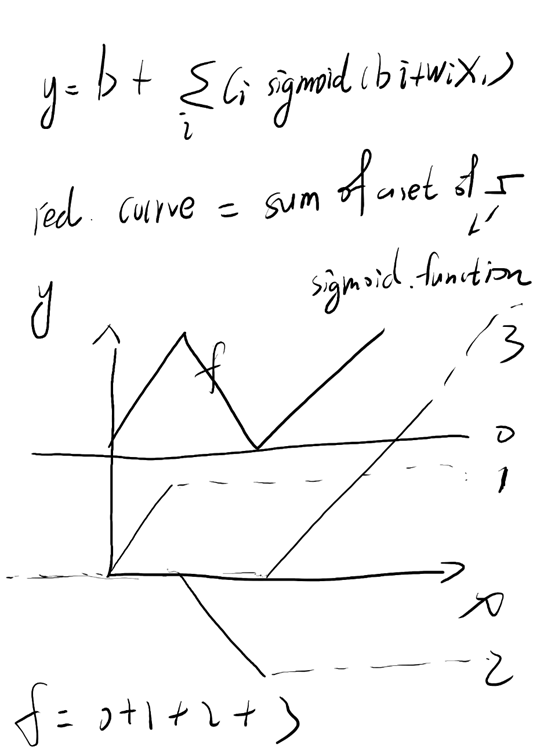 y = b + Σ Ci sigmoid (bi+wiX1)
i
red. curve = sum of a set of
sigmoid. function
y
3
f
0
1
x
2
f = 0+1+2+3